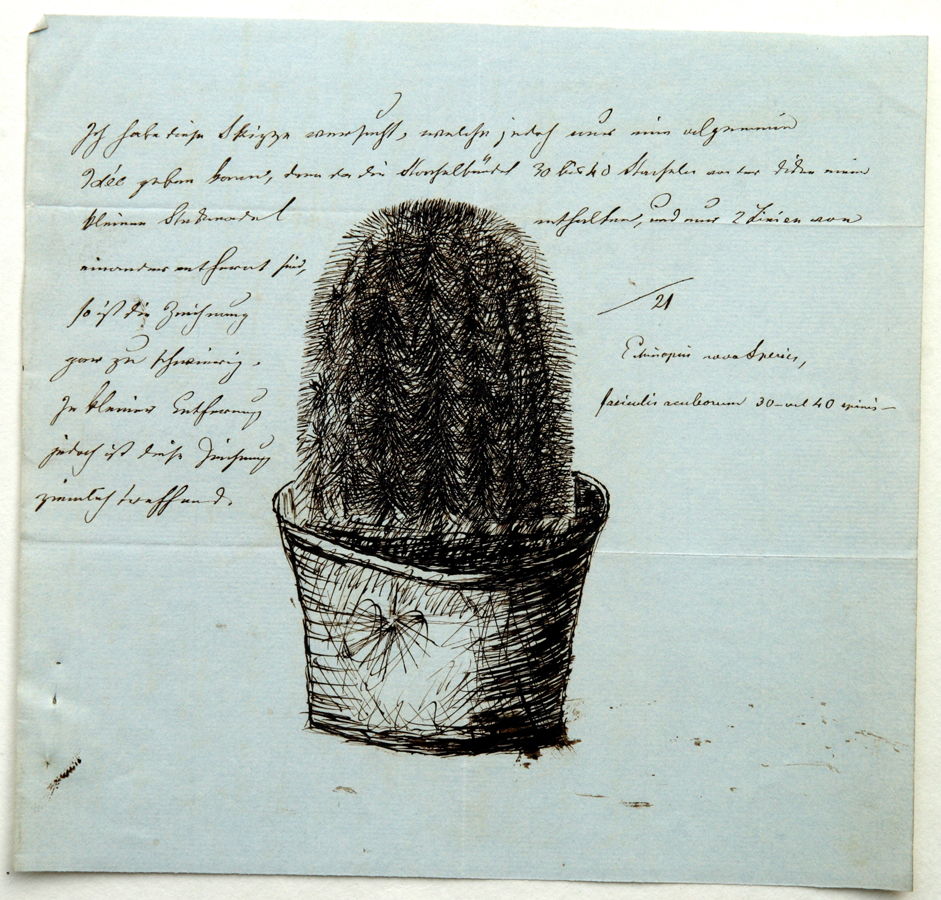 Ich habe diese Skizze versucht, welche jedoch nur eine algemeine
Idée geben kann, denn da die Stachelbündel 30 bis 40 Stacheln von der Dicke einer
kleinen Stecknadel enthalten, und nur 2 Linien von
einander entfernt sind,
so ist die Zeichnung
gar zu schwierig.
In kleiner Entfernung
jedoch ist diese Zeichnung
ziemlich treffend.
21
Echinopsis nova Species,
fasciculis aculeorum 30-vel 40 spinis-